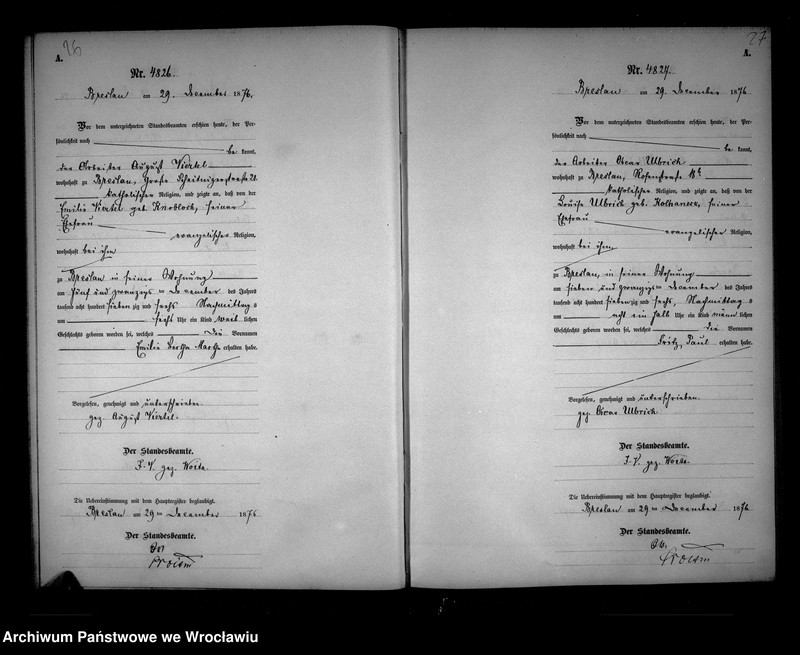 26
A.
Nr. 4826.
Breslau am 29. December 1876.
Vor dem unterzeichneten Standesbeamten erschien heute, der Per-
sönlichkeit nach
be kannt,
der Arbeiter August Viertel
wohnhaft zu Breslau, Große Scheitnigerstraße
katholischer Religion, und zeigte an, daß von der
Emilie Viertel geb. Knobloch, seiner
Ehefrau
evangelischer Religion,
wohnhaft bei ihm
zu Breslau in seiner Wohnung
am fünf und zwanzigsten December des Jahres
tausend acht hundert sieben zig und sechs Nachmittags
um sechs Uhr ein Kind weib lichen
Geschlechts geboren worden sei, welches die Vornamen
Emilie Bertha Martha erhalten habe.
Vorgelesen, genehmigt und unterschrieben
gez. August Viertel.
Der Standesbeamte.
I. V. gez.
Die Uebereinstimmung mit dem Hauptregister beglaubigt.
Breslau am 29ten December 1876
Der Standesbeamte.
27
A.
Nr. 4827.
Breslau am 29. December 1876
Vor dem unterzeichneten Standesbeamten erschien heute, der Per-
sönlichkeit nach
be kannt,
der Arbeiter Oscar Ulbrich
wohnhaft zu Breslau, Rosenstraße
katholischer Religion, und zeigte an, daß von der
Louise Ulbrich geb. seiner
Ehefrau
evangelischer Religion,
wohnhaft bei ihm
zu Breslau, in seiner Wohnung
am sieben und zwanzigsten December des Jahres
tausend acht hundert sieben zig und sechs, Nachmittags
um acht ein halb Uhr ein Kind männ lichen
Geschlechts geboren worden sei, welches die Vornamen
Fritz, Paul erhalten habe.
Vorgelesen, genehmigt und unterschrieben.
gez. Oscar Ulbrich.
Der Standesbeamte.
I. V. gez.
Die Uebereinstimmung mit dem Hauptregister beglaubigt.
Breslau am 29ten December 1876
Der Standesbeamte.
Archiwum Państwowe we Wrocławiu